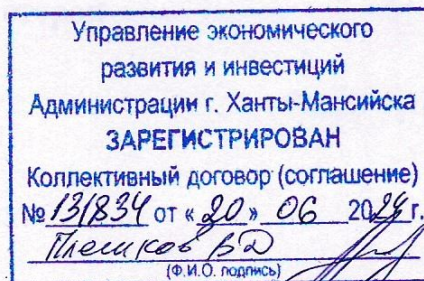 Управление экономического
развития и инвестиций
Администрации г. Ханты-Мансийска
ЗАРЕГИСТРИРОВАН
Коллективный договор (соглашение)
№ 131834 от «20» 06 2024 г.
Плешков ВД
(Ф.И.О. подпись)